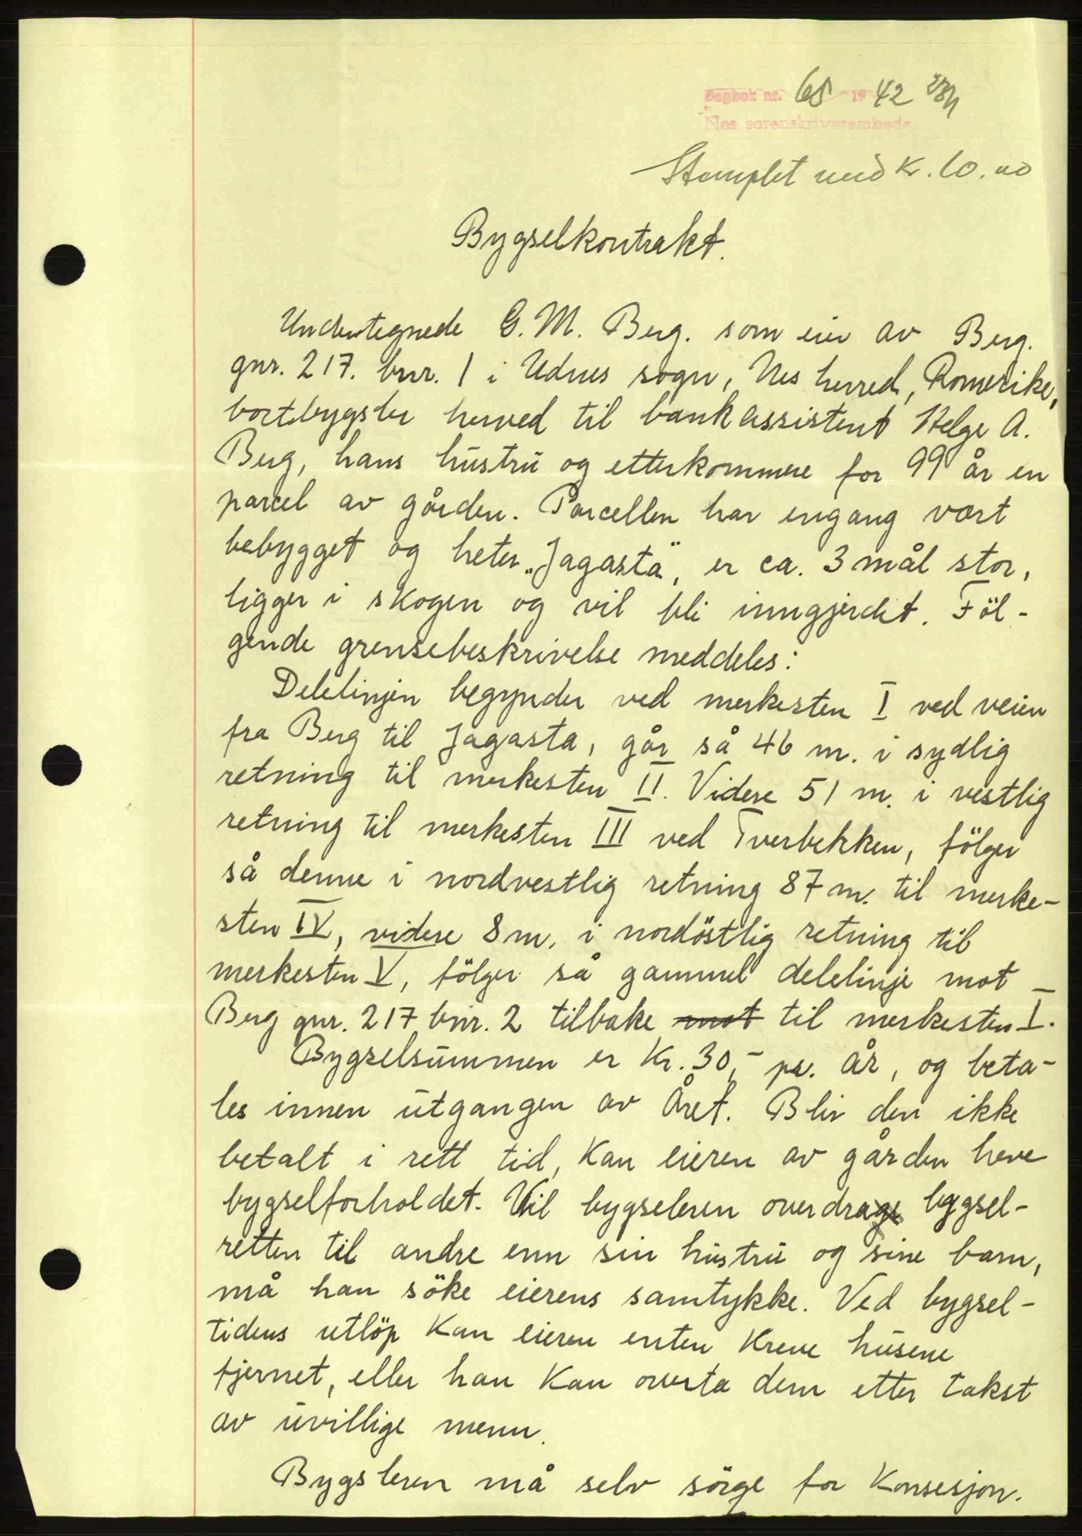 Dagbok nr. 68 1942
Nes sorenskriverembede
Stemplet med Kr. 10.00
Bygselkontrakt.
Undertegnede G. M. Berg. som eier av Berg.
gnr. 217. bnr. 1 i Udnes sogn, Nes herred, Romerike,
bortbygsler herved til bankassistent Helge A.
Berg, hans hustru og etterkommere for 99 år en
parcel av gården. Parcellen har engang vært
bebygget og heter „Jagasta", er ca. 3 mål stor,
ligger i skogen og vil bli inngjerdet. Föl-
gende grensebeskrivelse meddeles:
Delelinjen begynder ved merkesten I ved veien
fra Berg til Jagasta, går så 46 m. i sydlig
retning til merkesten II. Videre 51 m. i vestlig
retning til merkesten III ved Tverbekken, fölger
så denne i nordvestlig retning 87 m. til merke-
sten IV, videre 8 m. i nordöstlig retning til
merkesten V, fölger så gammel delelinje mot
Berg gnr. 217 bnr. 2 tilbake mot til merkesten I.
Bygselsummen er Kr. 30,- pr. år, og beta-
les innen utgangen av året. Blir den ikke
betalt i rett tid, kan eieren av gården heve
bygselforholdet. Vil bygseleren overdrage bygsel-
retten til andre enn sin hustru og sine barn,
må han söke eierens samtykke. Ved bygsel-
tidens utlöp kan eieren enten kreve husene
fjernet, eller han kan overta dem etter takst
av uvillige menn.
Bygsleren må selv sörge for Konsesjon.